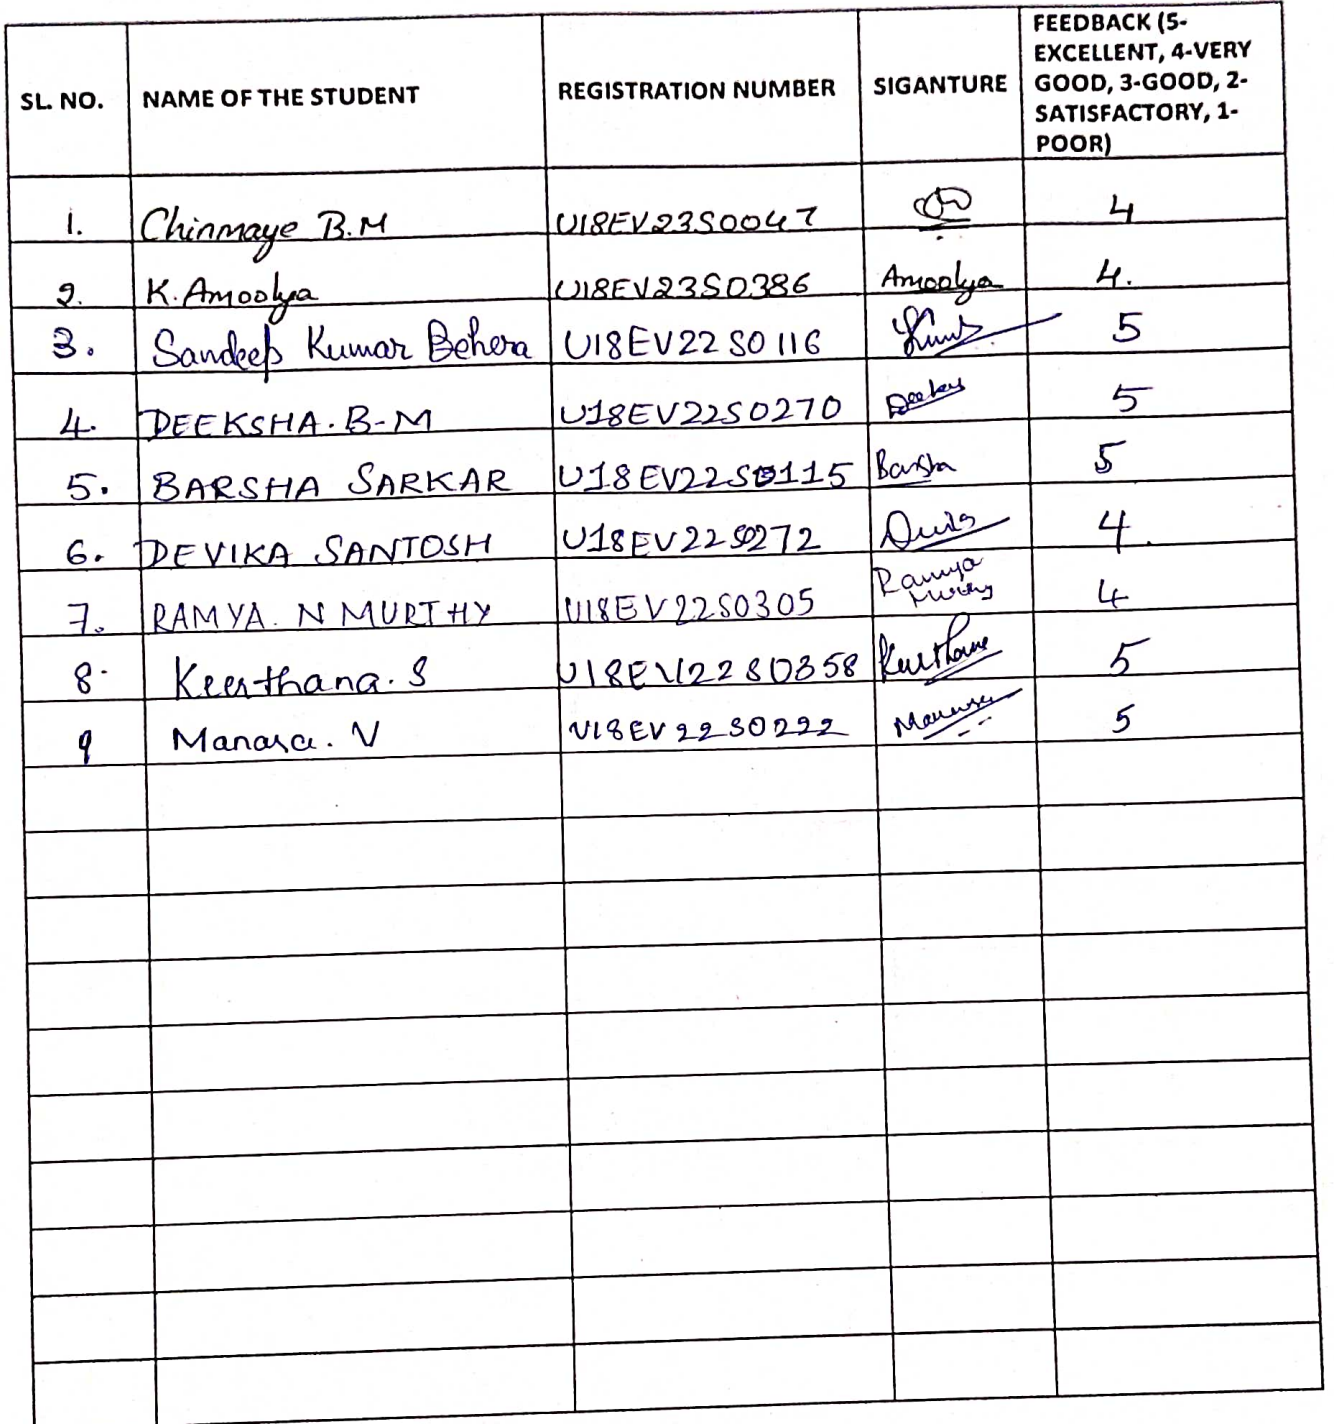 SL. NO. NAME OF THE STUDENT REGISTRATION NUMBER SIGANTURE FEEDBACK (5-
EXCELLENT, 4-VERY
GOOD, 3-GOOD, 2-
SATISFACTORY, 1-
POOR)
1. Chinmaye B.M U18EV23S0047 4
2. K. Amoolya U18EV23S0386 Amoolya 4.
3. Sandeep Kumar Behera U18EV22S0116 5
4. DEEKSHA. B-M U18EV22S0270 5
5. BARSHA SARKAR U18EV22S0115 Barsha 5
6. DEVIKA SANTOSH U18EV22S0272 4.
7. RAMYA. N MURTHY U18EV22S0305 Ramya
Murthy 4
8. Keerthana. S U18EV22S0358 Keerthana 5
9 Manasa. V U18EV22S0222 Manasa 5